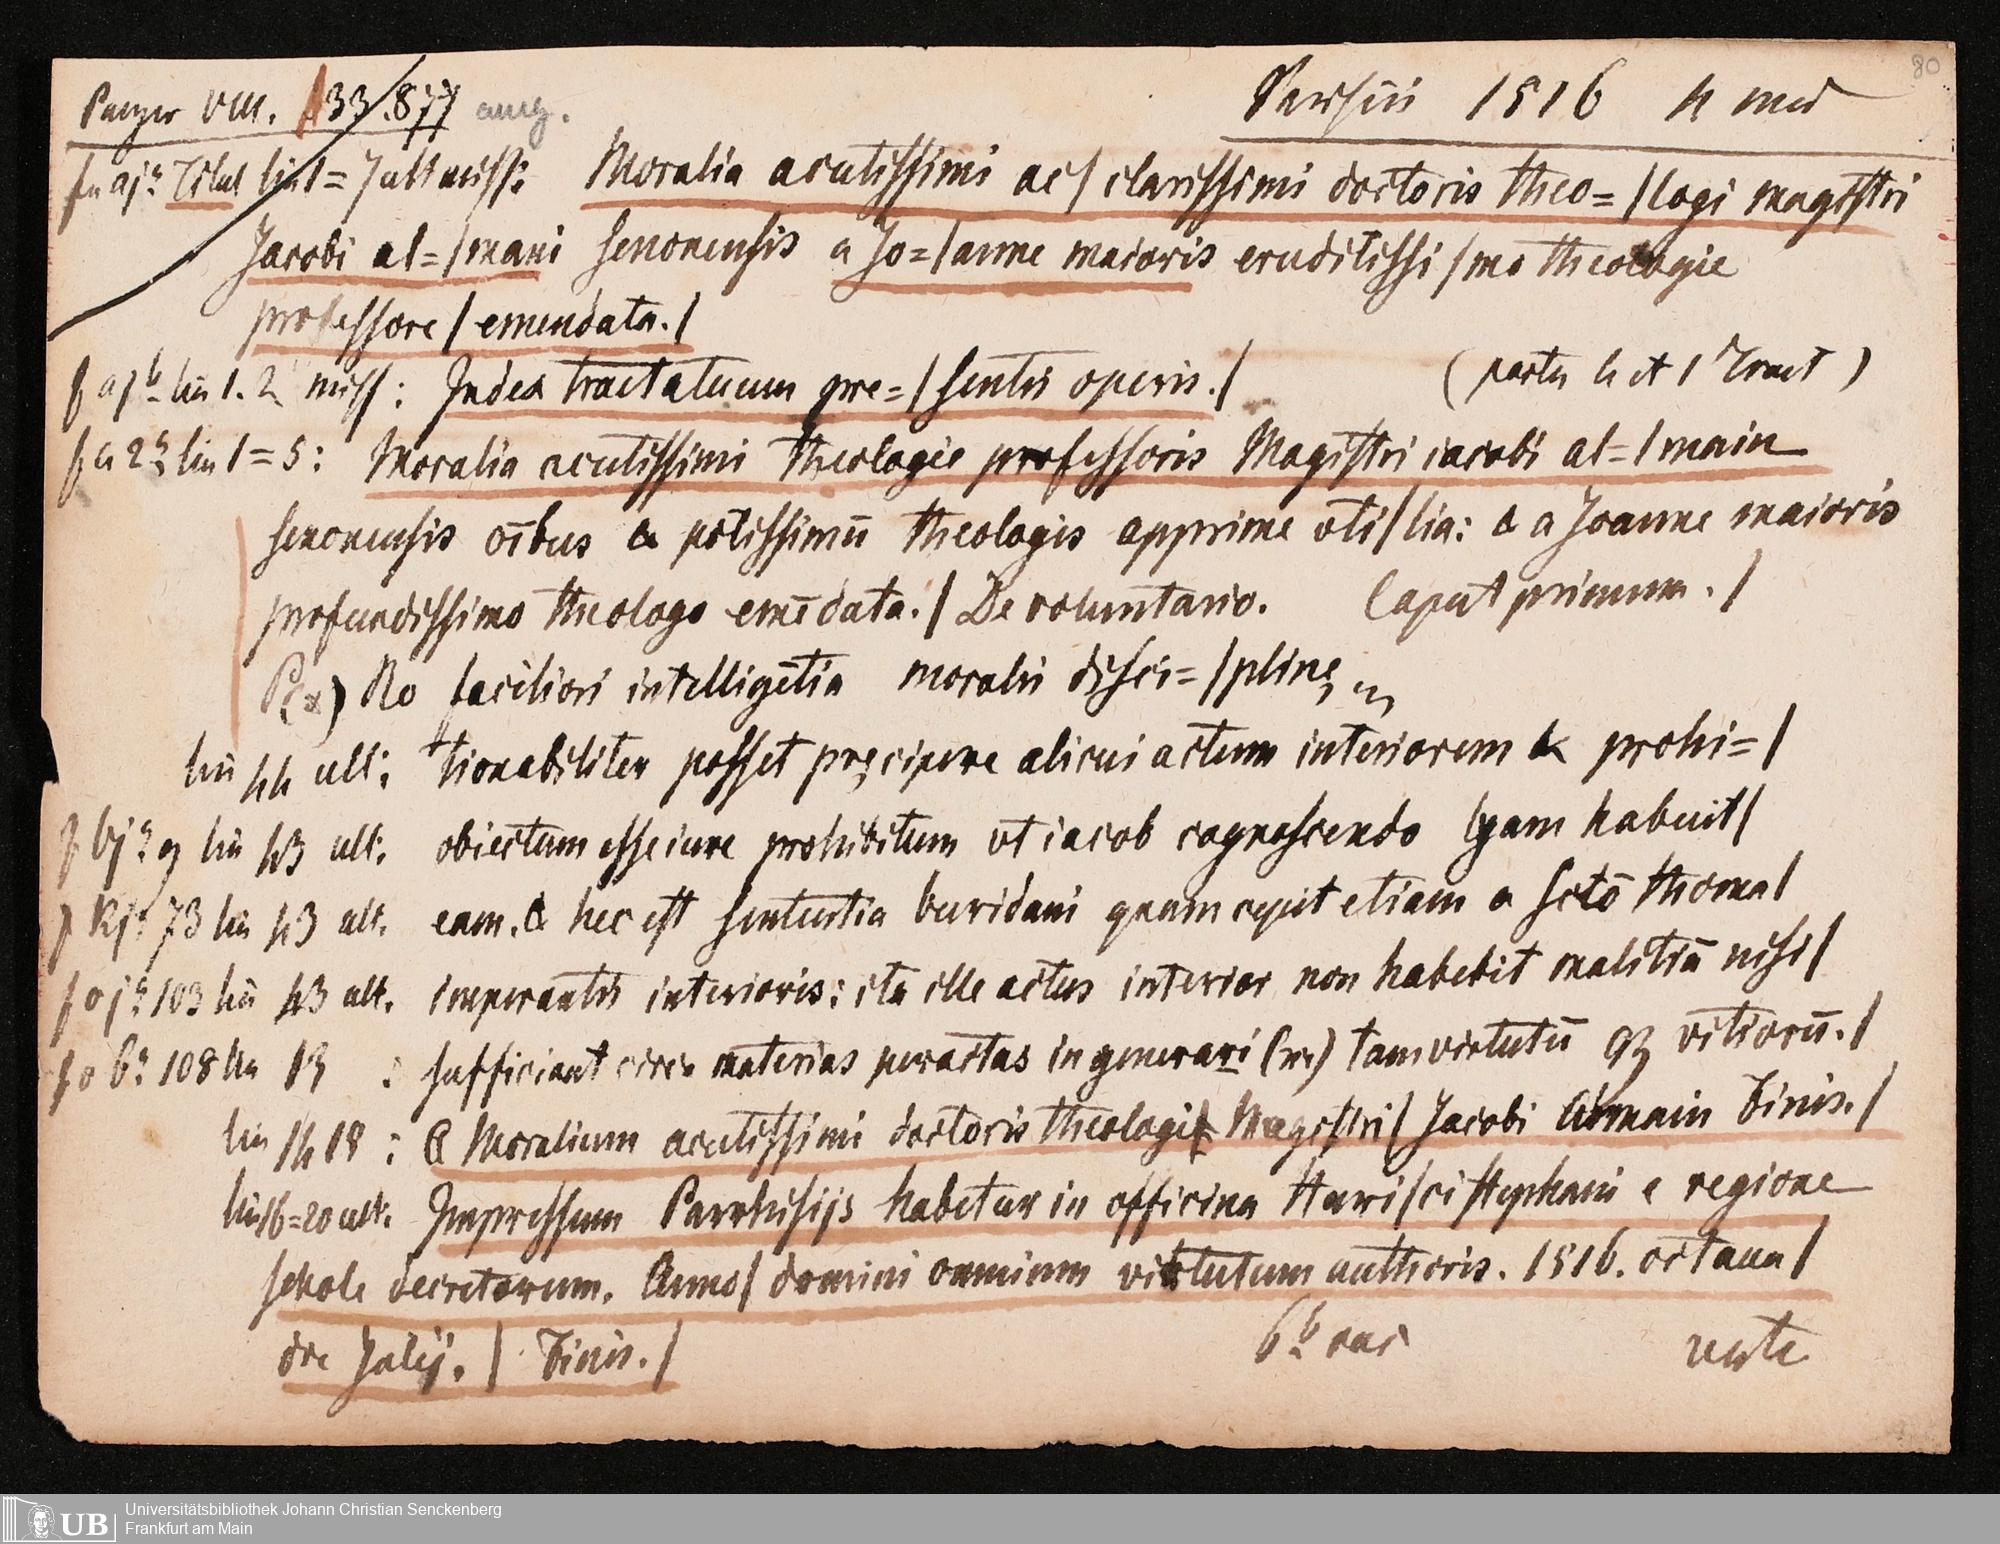 80
Panzer VIII. 133.877 aug. Parisiis 1516 4 min
f. aj.a Titul lin 1=7 ult miss: Moralia acutissimi ac/ clarissimi doctoris theo=/logi magistri
Jacobi al=/mani senonensis a Jo=/anne maioris eruditissi/mo theologie
professore / emendata. /
f aj b lin 1. 2 miss: Index tractatuum pre=/sentis operis. / (partes 4 et 1 Tract)
f a 2 a lin 1=5: Moralia acutissimi theologie professoris Magistri iacobi al=/main
senonensis oībus & potissimū theologis apprime vti/lia: & a Joanne maioris
profundissimo theologo emēdata. / De voluntario. Caput primum. /
P(x) Ro faciliori intelligētia moralis disci=/plinę
lin 44 ult: tionabiliter posset pręcipere alicui actum interiorem & prohi=/
f bj a 9 lin 43 ult. obiectum esse iure prohibitum vt iacob cognoscendo lyam habuit/
f kj a 73 lin 43 ult. eam. & hec est sententia buridani quam cepit etiam a sctō thoma/
f oj a 103 lin 43 ult. imperantis interioris: ita ille actus interior non habebit malitiā nisi/
f o 6 a 108 lin 13 : sufficiant circa materias peractas in generari (sic) tam virtutū qz vitiorū. /
lin 14 15 : & Moralium acutissimi doctoris theologi Magistri / Jacobi Almain Finis. /
lin 16=20 ult. Impressum Parrhisijs habetur in officina Henri/ci stephani e regione
schole decretorum. Anno/ domini omnium virtutum authoris. 1516. octaua/
die Julij. / Finis. /
Universitätsbibliothek Johann Christian Senckenberg
UB Frankfurt am Main